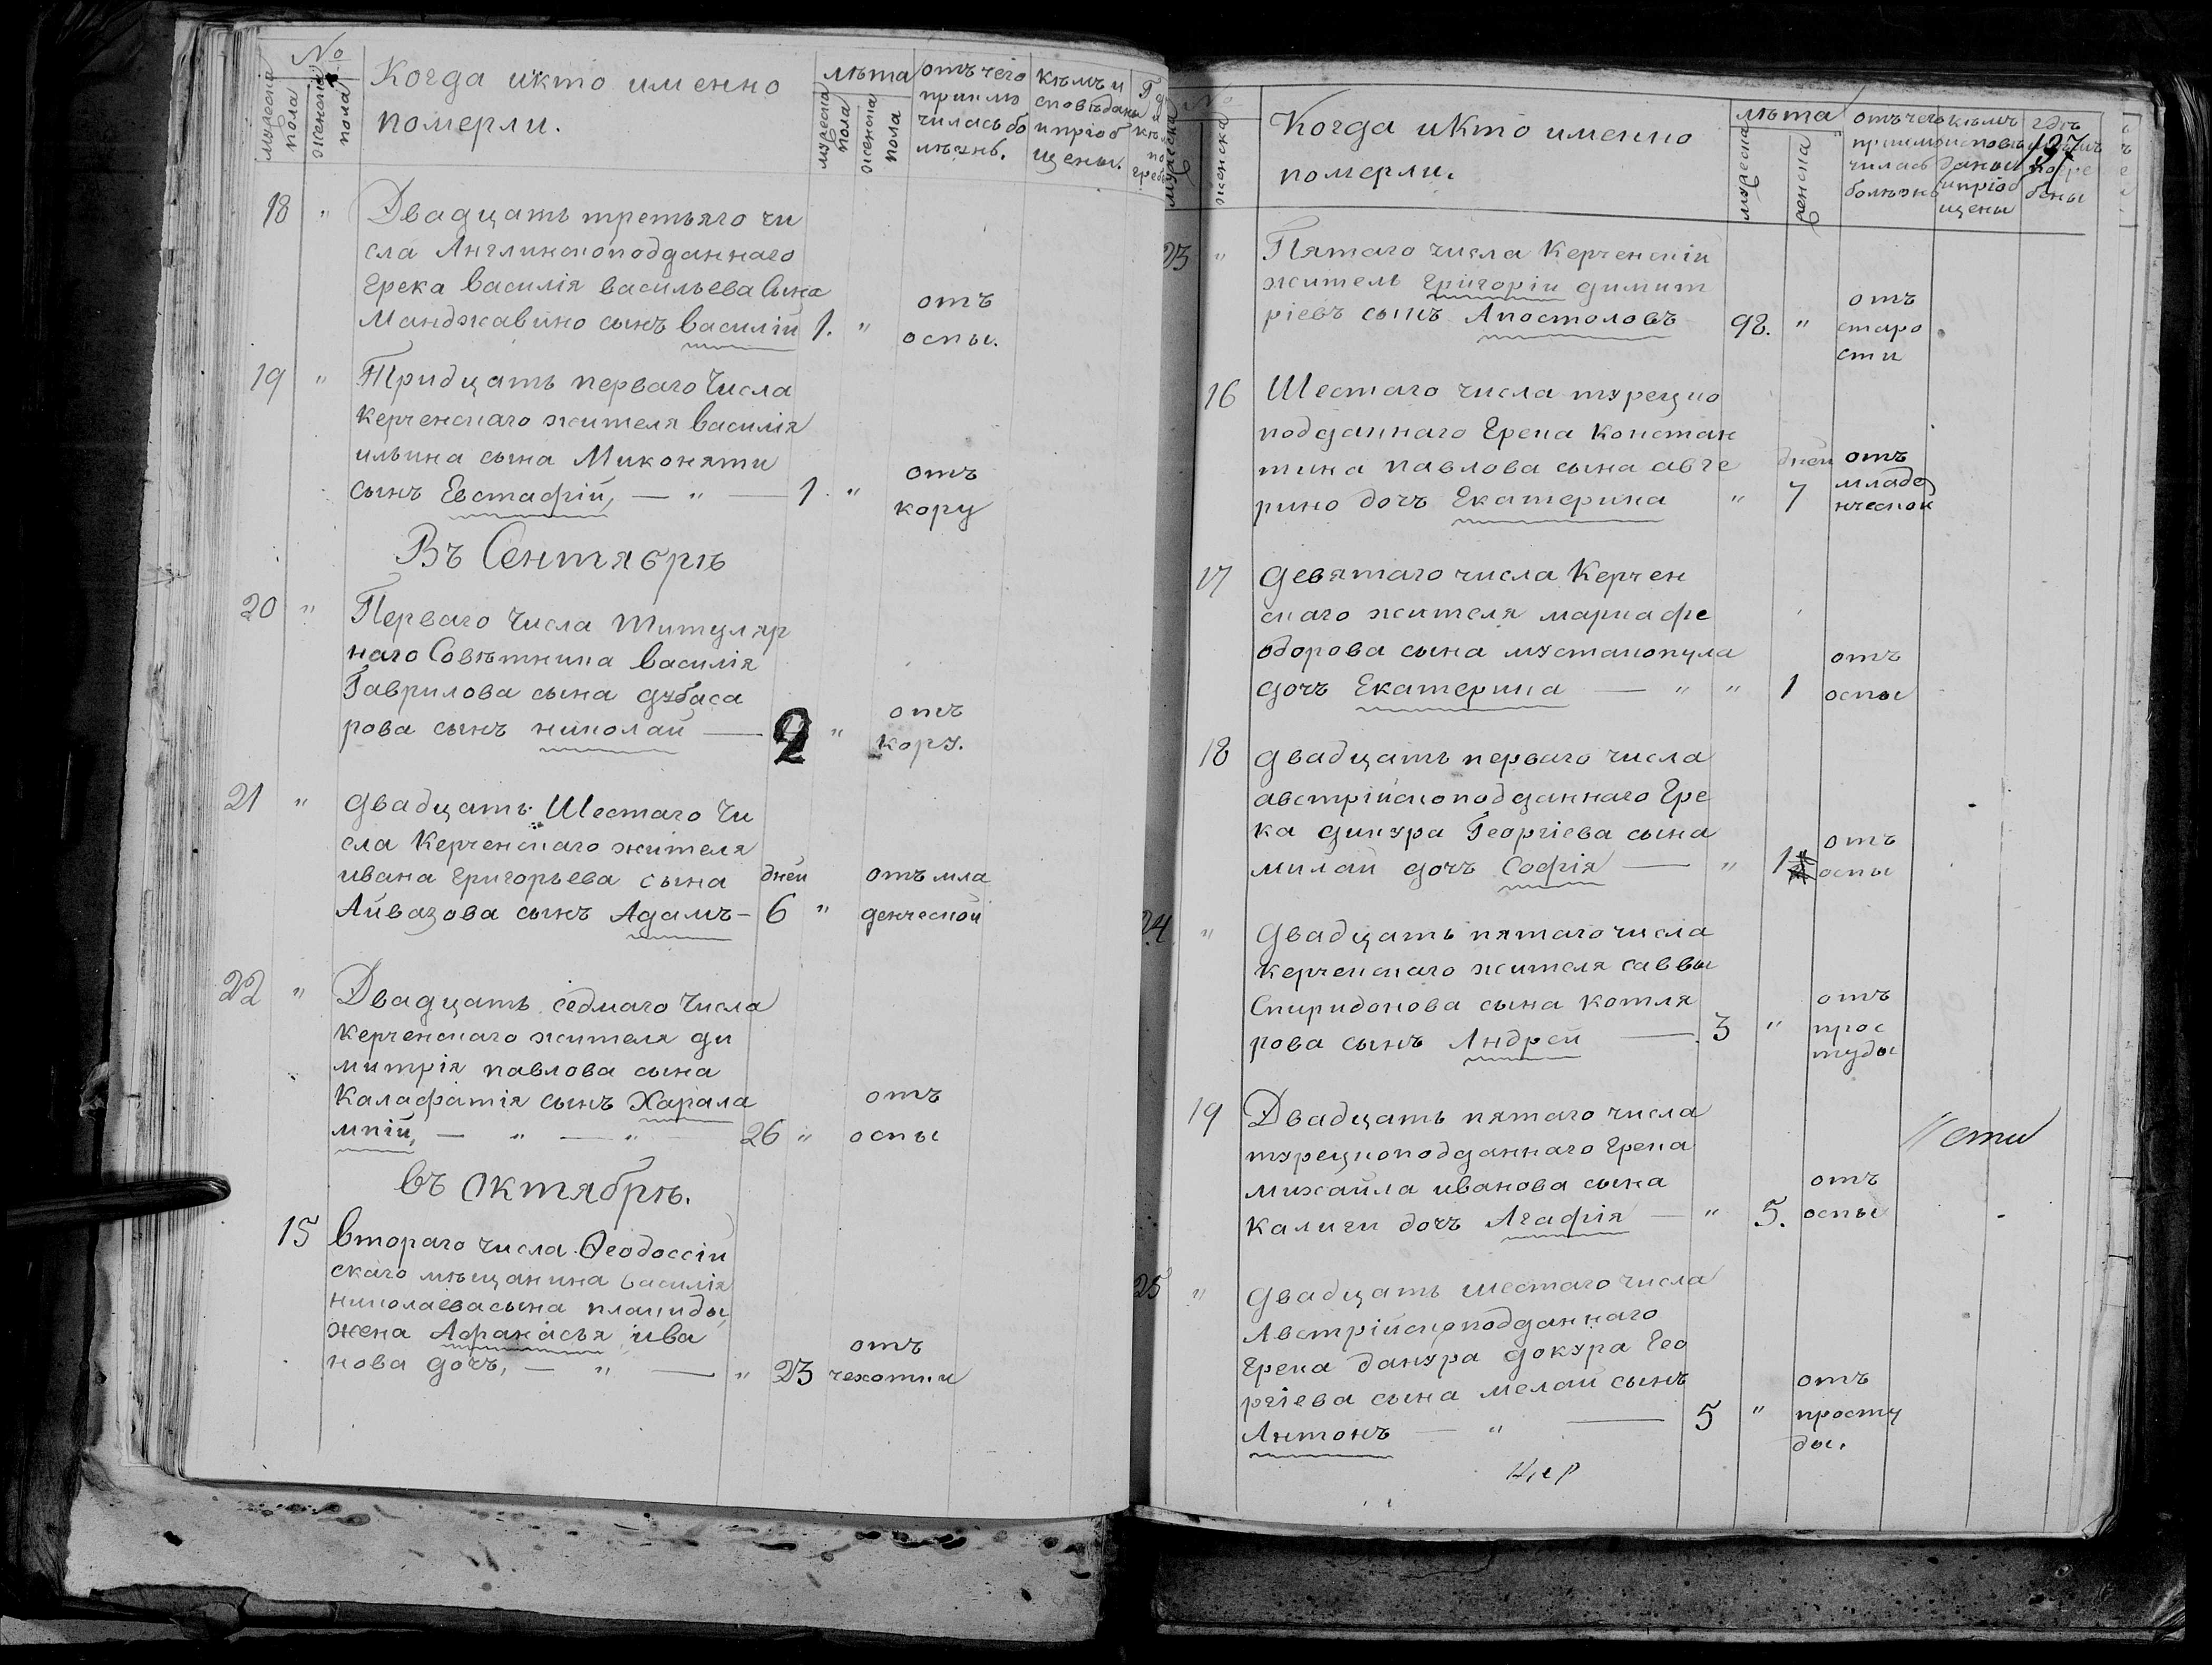 №
мужеска пола
женска пола
Когда икто именно
померли.
лѣта
мужеска пола
женска пола
отъ чего
приклю
чилась бо
лѣзнь.
кѣмъ и
сповѣданы
и пріоб
щены.
18 "
Двадцать третьяго чи
сла Англинскоподданнаго
Грека Василія Васильева Сына
Манджавино сынъ Василій 1. " отъ
оспы.
19 "
Тридцать перваго Числа
Керченскаго жителя Василія
ильина сына Миконяти
сынъ Евстафій, — " — 1. " отъ
кору
Въ Сентябрѣ
20 "
Перваго Числа Титуляр
наго Совѣтника Василія
Гаврилова сына дубаса
рова сынъ николай — 2 " отъ
кору.
21 "
Двадцать Шестаго Чи
сла Керченскаго жителя
ивана григорьева сына дней отъ мла
Айвазова сынъ Адамъ - 6 " денческой
22 "
Двадцать седмаго Числа
Керченскаго жителя ди
митрія павлова сына
Калафатія сынъ Харала отъ
мпій, — " — " 26 " оспы
въ Октябрѣ.
15
Втораго числа Ѳеодоссій
скаго мѣщанина Василія
николаева сына плакиды,
жена Афанасья ива отъ
нова дочъ, — " — " 23 чехотки
№
мужеска
женска
Когда икто именно
померли.
лѣта
мужеска
женска
отъ чего
приклю
чилась
болѣзнь
кѣмъ
исповѣ
даны
и пріоб
щены
гдѣ
бены
23 "
Пятаго числа Керченскій
житель Григорій димит
ріевъ сынъ Апостоловъ 98. " отъ
старо
сти
16
Шестаго числа турецко
подданнаго Грека Констан
тина павлова сына авге дней отъ
рино дочъ Екатерина " 7 младе
нческой
17
Девятаго числа Керчен
скаго жителя марка фе
одорова сына мустакопула отъ
дочъ Екатерина — " " 1 оспы
18
Двадцать перваго числа
австрійскоподданнаго Гре
ка Георгіева сына отъ
милай дочъ Софія — " 1 оспы
24 "
Двадцать пятаго числа
Керченскаго жителя саввы
Спиридонова сына Котля отъ
рова сынъ Андрей — 3 " прос
туды
19
Двадцать пятаго числа
турецкоподданнаго грека
михайла иванова сына отъ
калиги дочъ Агафія — " 5. оспы
// сти
25 "
Двадцать шестаго числа
Австрійскоподданнаго
Грека докура Гео
ргіева сына мелай сынъ отъ
Антонъ — " — 5 " просту
ды.